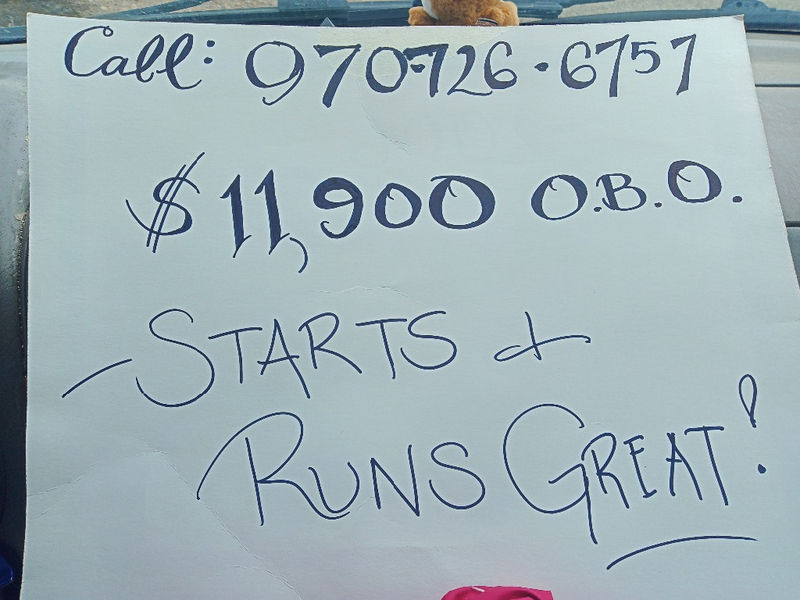 Call: 970-726-6757
$11,900 O.B.O.
-STARTS &
RUNS GREAT!